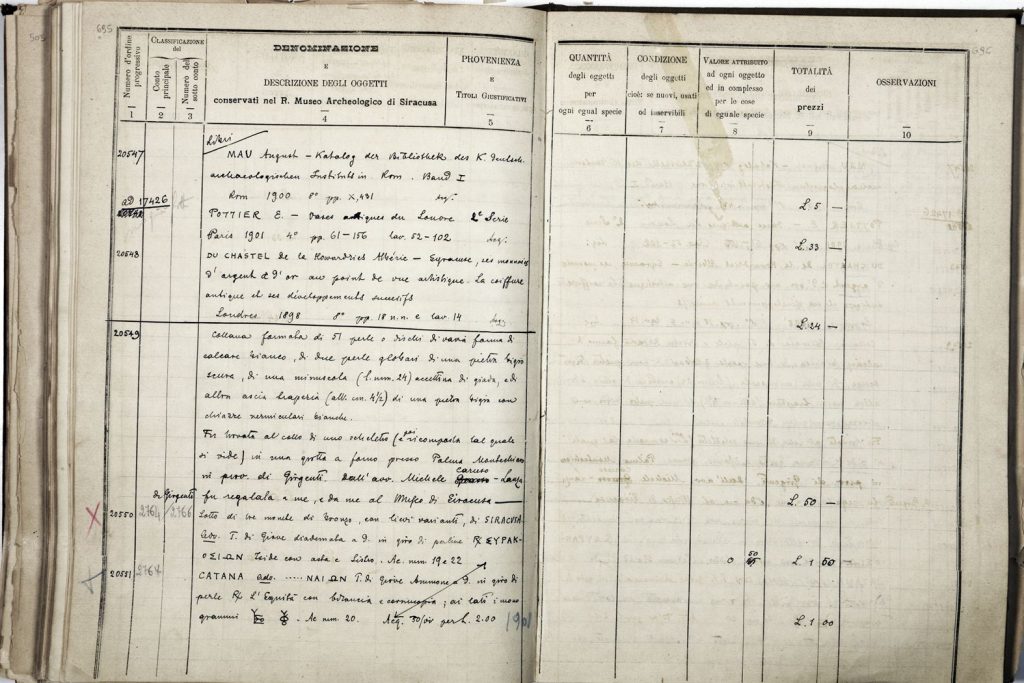 695
505
Numero d'ordine progressivo
CLASSIFICAZIONE
del
Conto principale
Numero del sotto conto
DENOMINAZIONE
E
DESCRIZIONE DEGLI OGGETTI
conservati nel R. Museo Archeologico di Siracusa
PROVENIENZA
E
TITOLI GIUSTIFICATIVI
1 2 3 4 5
Libri
20547 MAU August – Katalog der Bibliothek des K. deutsch.
archaeologischen Instituts in Rom. Band I
Rom 1900 8° pp. X, 431
ad 17426
POTTIER E. – Vases antiques du Louvre 2e Serie
Paris 1901 4° pp. 61–156 tav. 52–102
20548 DU CHASTEL de la Howardries Albéric – Syracuse, ses monnaies
d'argent et d'or au point de vue artistique. La coiffure
antique et ses développements successifs
Londres 1898 8° pp. 18 n.n. e tav. 14
20549 Collana formata di 51 perle o dischi di varia forma di
calcare bianco, di due perle globari di una pietra bigio
scura, di una minuscola (l. mm. 24) accettina di giada, e di
altra ascia trapezia (alt. cm. 4½) di una pietra bigia con
chiazze vermiculari bianche.
Fu trovata al collo di uno scheletro (e poi ricomposta tal quale
si vide) in una grotta a forno presso Palma Montechiaro
in prov. di Girgenti. Dall'avv. Michele Caruso – Lanza
fu regalata a me, e da me al Museo di Siracusa
de Girgenti
X 20550 2764/2766 Lotto di tre monete di bronzo, con lievi varianti, di SIRACUSA
ado. T. di Giove diademata a d. in giro di perline ℞ ΣΥΡΑΚ-
ΟΣΙΩΝ Iside con asta e Sistro. Ae. mm. 19 e 22
20551 2767 CATANA ado. ..... ΝΑΙΩΝ T. di Giove Ammone a d. in giro di
perle ℞ L'Equità con bilancia e cornucopia; ai lati i mono
grammi Ae mm. 20. Acq. 30/IV per L. 2.00 1901
QUANTITÀ
degli oggetti
per
ogni egual specie
6
CONDIZIONE
degli oggetti
cioè: se nuovi, usati
od inservibili
7
VALORE ATTRIBUITO
ad ogni oggetto
ed in complesso
per le cose
di eguale specie
8
TOTALITÀ
dei
prezzi
9
OSSERVAZIONI
10
L. 5 —
L. 33 —
L. 24 —
L. 50 —
0 50 L. 1 50 —
L. 1 00